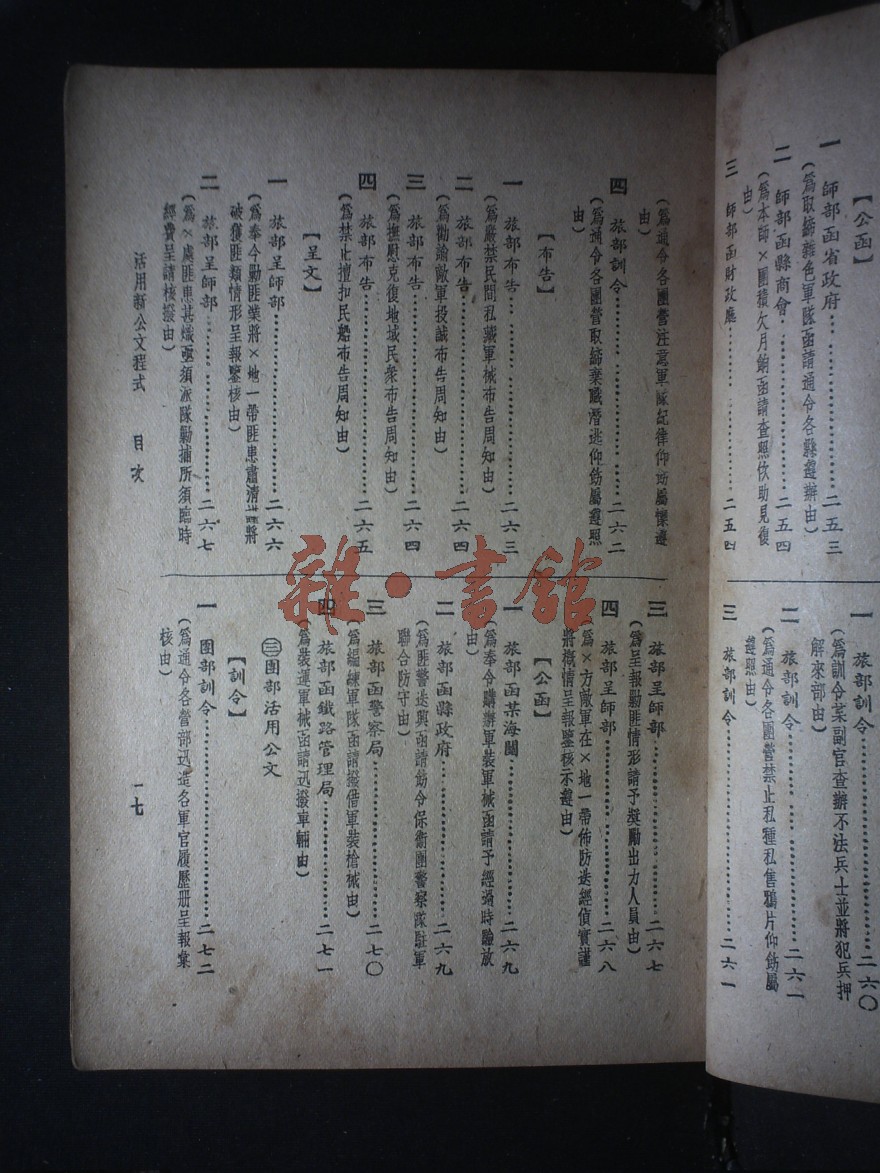 【公函】
一 師部函省政府……二五三
(爲取締雜色軍隊函請通令各縣遵辦由)
二 師部函縣商會……二五四
(爲本師×團積欠月餉函請查照伙助見復
由)
三 師部函財政廳……二五四
一 旅部訓令……二六〇
(爲訓令某副官查辦不法兵士並將犯兵押
解來部由)
二 旅部訓令……二六一
(爲通令各團營禁止私種私售鴉片仰飭屬
遵照由)
三 旅部訓令……二六一
(爲通令各團營注意軍隊紀律仰飭屬懍遵
由)
四 旅部訓令……二六二
(爲通令各團營取締棄職潛逃仰飭屬遵照
由)
【布告】
一 旅部布告……二六三
(爲嚴禁民間私藏軍械布告周知由)
二 旅部布告……二六四
(爲勸諭敵軍投誠布告周知由)
三 旅部布告……二六四
(爲撫慰克復地域民衆布告周知由)
四 旅部布告……二六五
(爲禁止擅扣民船布告周知由)
【呈文】
一 旅部呈師部……二六六
(爲奉令勦匪業將×地一帶匪患肅清謹將
破獲匪類情形呈報鑒核由)
二 旅部呈師部……二六七
(爲×處匪患甚熾亟須派隊勦捕所須臨時
經費呈請核撥由)
三 旅部呈師部……二六七
(爲呈報勦匪情形請予獎勵出力人員由)
四 旅部呈師部……二六八
(爲×方敵軍在×地一帶佈防迭經偵實謹
將徵情呈報鑒核示遵由)
【公函】
一 旅部函某海關……二六九
(爲奉令購辦軍裝軍械函請予經過時驗放
由)
二 旅部函縣政府……二六九
(爲匪警迭興函請飭令保衛團警察隊駐軍
聯合防守由)
三 旅部函警察局……二七〇
(爲編練軍隊函請撥借軍裝槍械由)
四 旅部函鐵路管理局……二七一
(爲裝運軍械函請迅撥車輛由)
㊂團部活用公文
【訓令】
一 團部訓令……二七二
(爲通令各營部迅造各軍官履歷册呈報彙
核由)
活用新公文程式 目次
一七
雜·書館